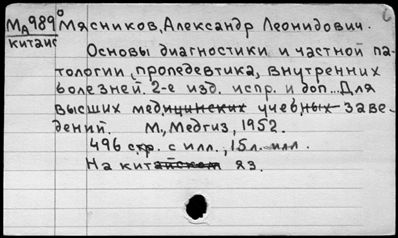 МА989 Мясников, Александр Леонидович.
китайс
Основы диагностики и частной па-
тологии, пропедевтика, внутренних
болезней. 2-е изд. испр. и доп... Для
высших медицинских учебных заве-
дений. М., Медгиз, 1952.
496 стр. с илл., 15 л. илл.
На китайском яз.